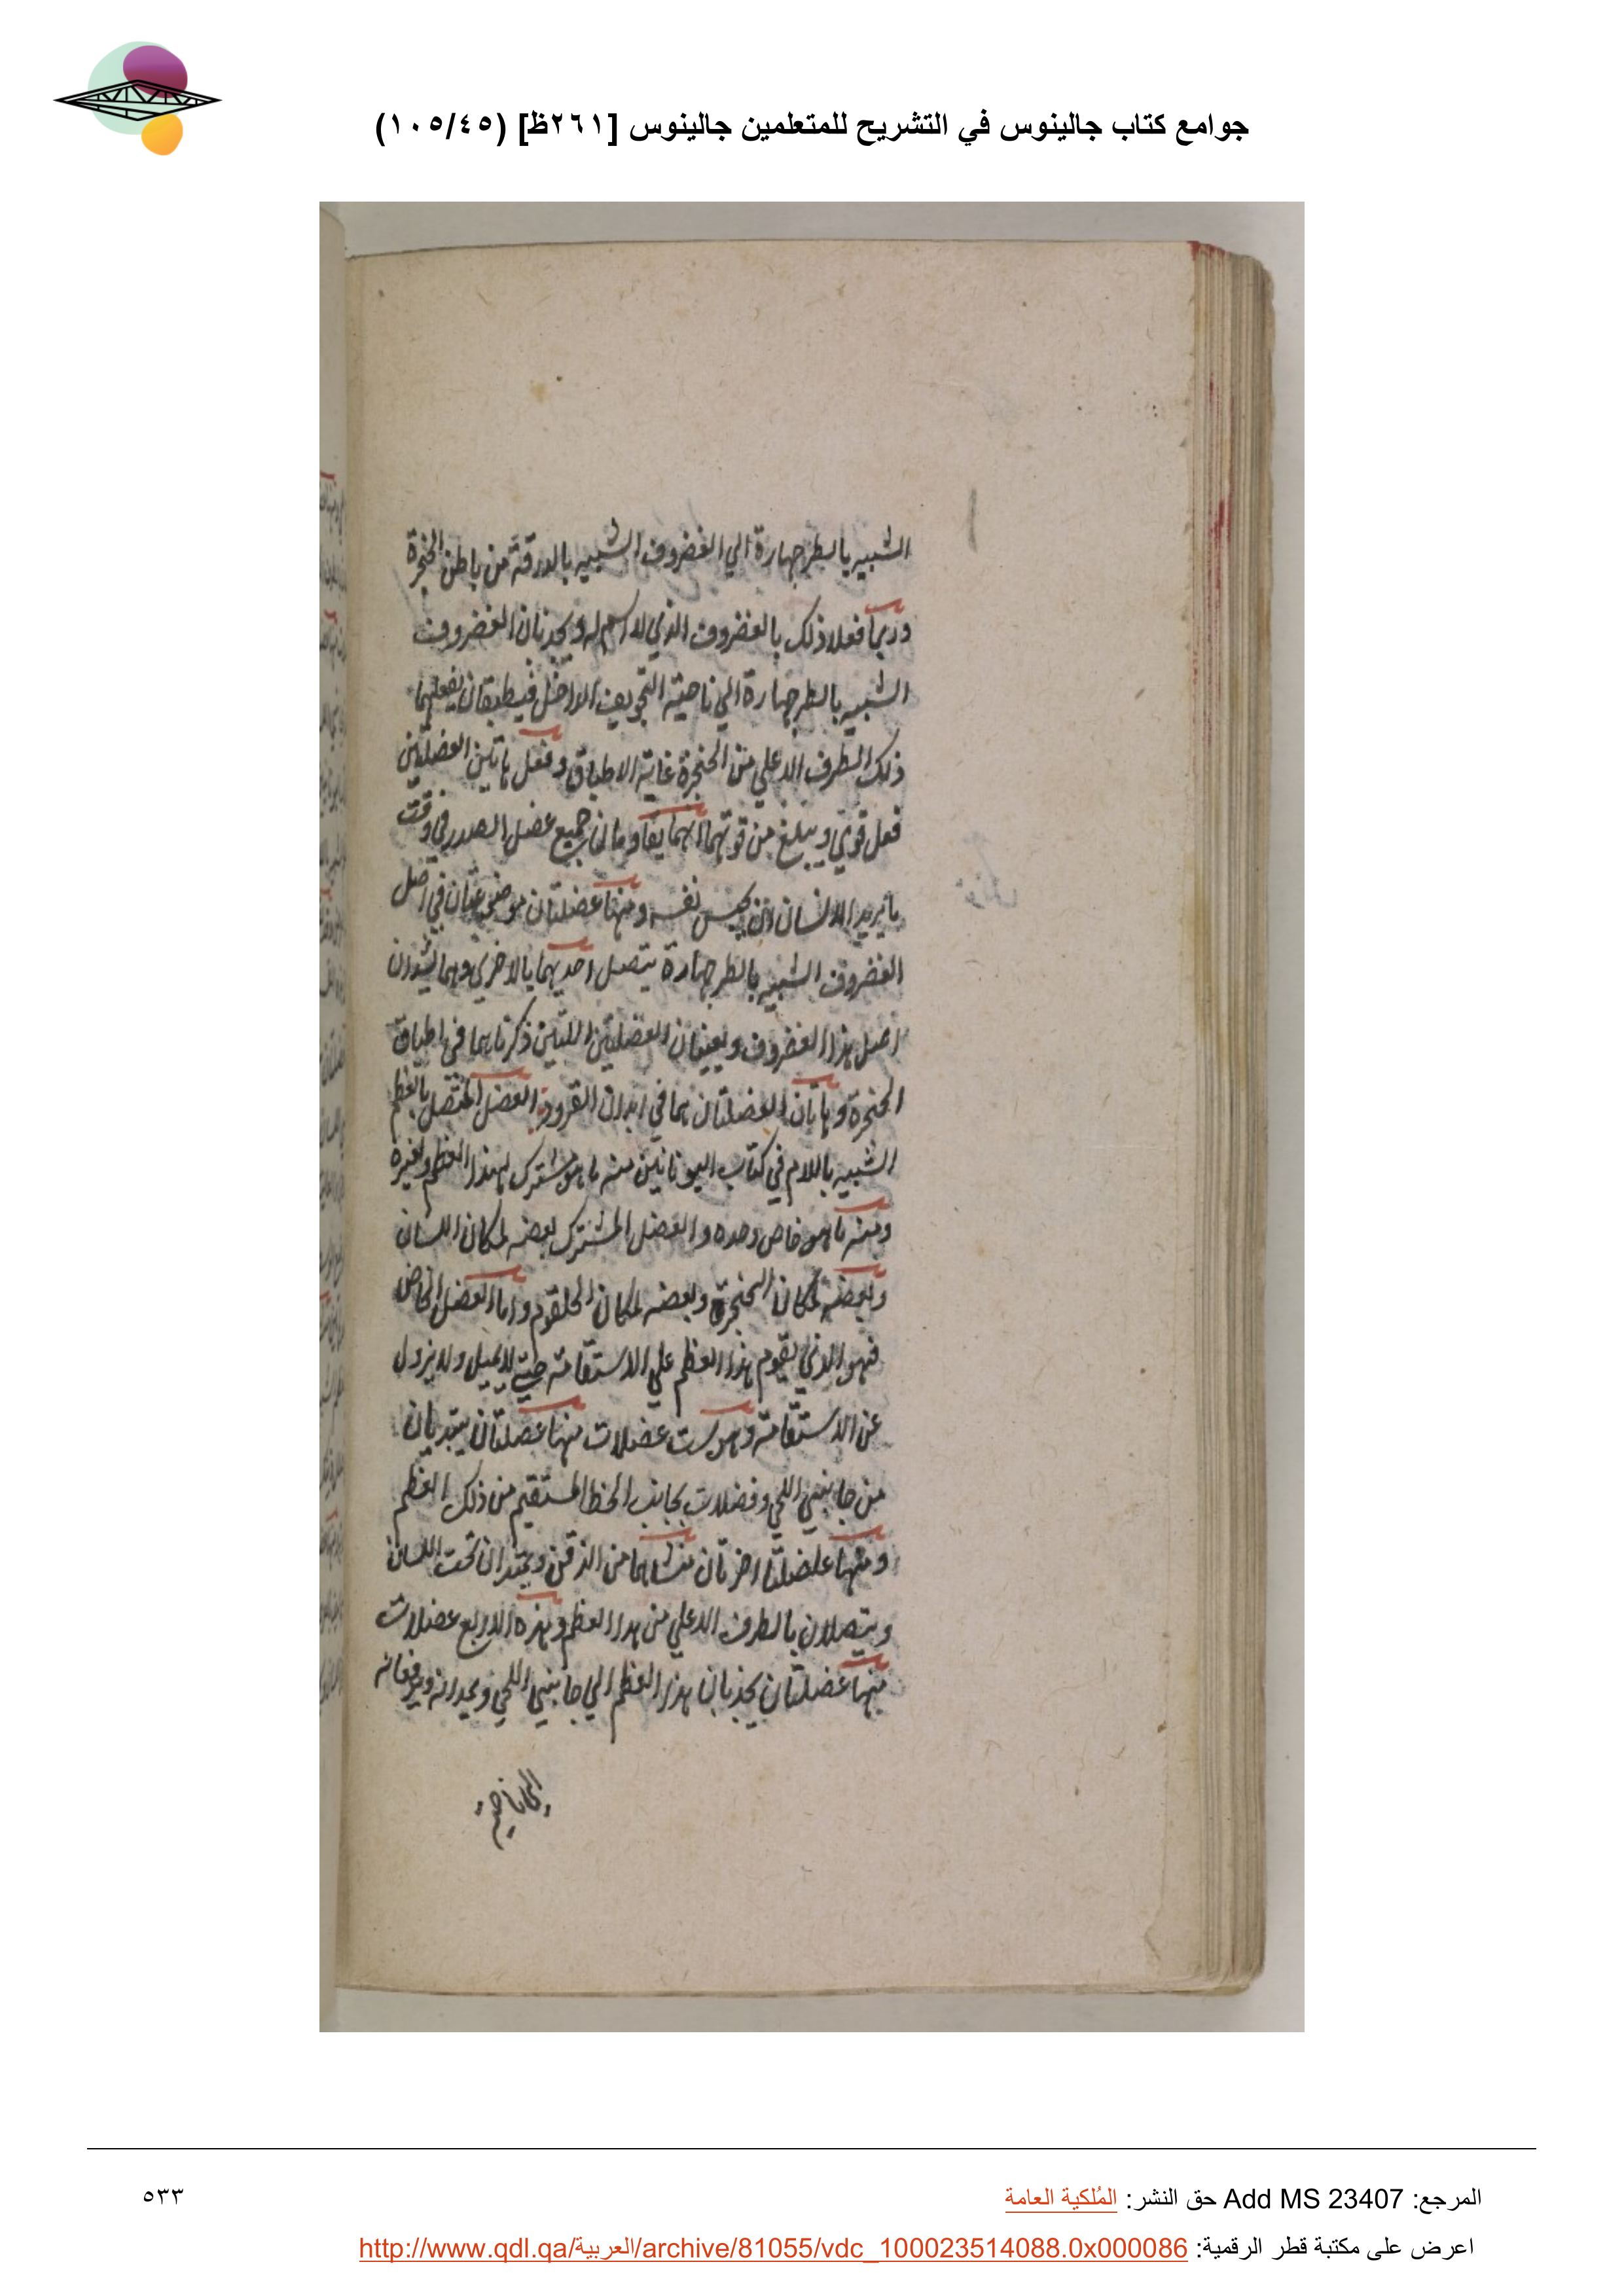 جوامع كتاب جالينوس في التشريح للمتعلمين جالينوس [٢٦١ظ] (١٠٥/٤٥)
الشبيه بالطرجهارة الي الغضروف الشبيه بالدرقة من باطن الحنجرة
وربما فعلا ذلك بالغضروف الذي لا اسم له ويجذبان الغضروف
الشبيه بالطرجهارة الي ناحية التجويف الداخل فيطبقان بفعلهما
ذلك الطرف الاعلي من الحنجرة غاية الاطباق وفعل هاتين العضلتين
فعل قوي ويبلغ من قوتهما انهما يقاومان جميع عضل الصدر في وقت
ما يريد الانسان ان يحبس نفسه ومنها عضلتان موضوعتان في اصل
الغضروف الشبيه بالطرجهارة يتصل احديهما بالاخري وهما يشدان
اصل هذا الغضروف ويعينان العضلتين اللتين ذكرناهما في اطباق
الحنجرة وهاتان العضلتان هما في ابدان القرود العضل المتصل بالعظم
الشبيه باللام في كتاب اليونانيين منه ما هو مشترك لهذا العظم ولغيره
ومنه ما هو خاص وحده والعضل المشترك بعضه لمكان اللسان
وبعضه لمكان الحنجرة وبعضه لمكان الحلقوم واما العضل الخاص
فهو الذي يقوم هذا العظم علي الاستقامة حتي لا يميل ولا يزول
عن الاستقامة وهو ست عضلات منها عضلتان يبتديان
من جانبي اللحي وفضلات بجانب الخط المستقيم من ذلك العظم
ومنها عضلتا اخرتان منشاهما من الذقن ويمتدان تحت اللسان
ويتصلان بالطرف الاعلي من هدا العظم وهذه الاربع عضلات
منها عضلتان يجذبان هذا العظم الي جانبي اللحي ويمدانه ويرفعانه
الي ناحية
المرجع: Add MS 23407 حق النشر: المُلكية العامة
٥٣٣
اعرض على مكتبة قطر الرقمية: http://www.qdl.qa/العربية/archive/81055/vdc_100023514088.0x000086